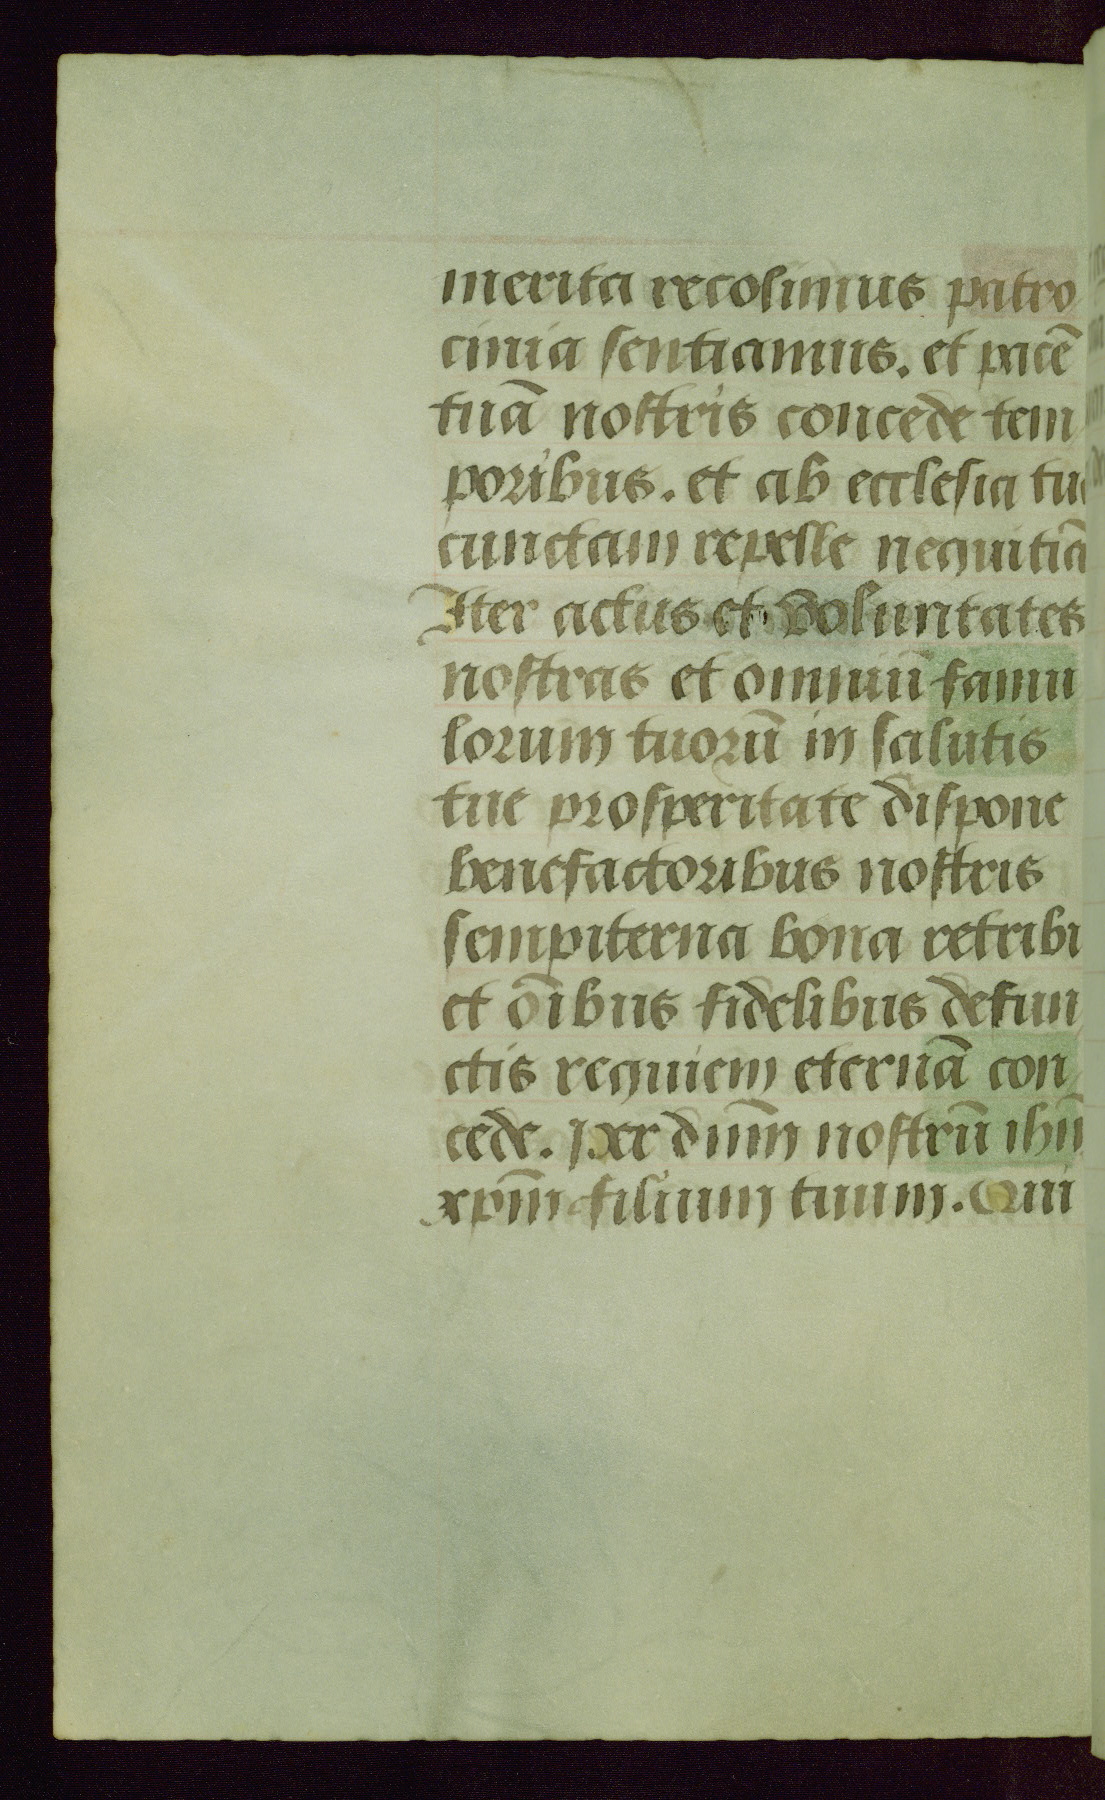 merita recolimus patro
cinia sentiamus. et pacē
tuā nostris concede tem
poribus. et ab ecclesia tua
cunctam repelle nequitiā
Iter actus et voluntates
nostras et omniū famu
lorum tuorū in salutis
tue prosperitate dispone
benefactoribus nostris
sempiterna bona retribu
et oībus fidelibus defun
ctis requiem eternā con
cede. Per dnm̄ nostrū ihū
xpm̄ filium tuum. Qui